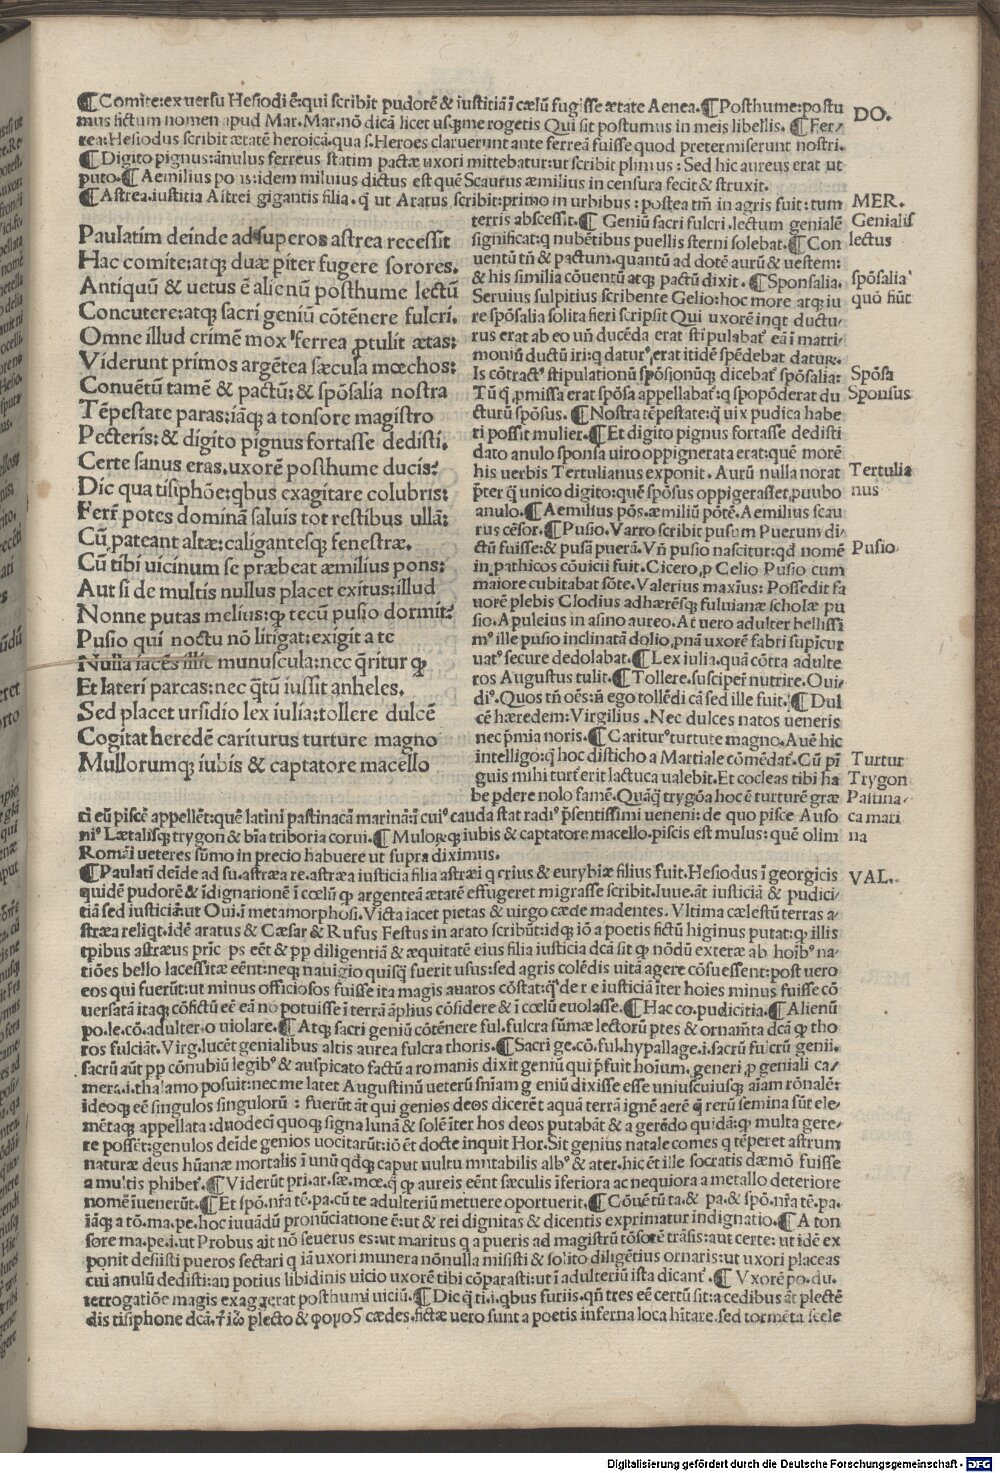 ¶Comite:ex uersu Hesiodi ē:qui scribit pudorē & iustitiā ī cælū fugisse ætate Aenea.¶Posthume:postu
mus fictum nomen apud Mar.Mar.nō dicā licet usq̄ me rogetis Qui sit postumus in meis libellis. ¶Fer/
rea:Hesiodus scribit ætatē heroicā.qua s.Heroes claruerunt ante ferreā fuisse quod pretermiserunt nostri.
¶Digito pignus:ānulus ferreus statim pactæ uxori mittebatur:ut scribit plinius : Sed hic aureus erat ut
puto.¶Aemilius pons:idem miluius dictus est quē Scaurus æmilius in censura fecit & struxit.
DO.
¶Astrea.iustitia Astrei gigantis filia.q̄ ut Aratus scribit:primo in urbibus : postea tm̄ in agris fuit:tum
MER.
Paulatim deinde ad superos astrea recessit
Hac comite:atq; duæ piter fugere sorores.
Antiquū & uetus ē alienū posthume lectū
Concutere:atq; sacri geniū cōtēnere fulcri.
Omne illud crimē mox ferrea ptulit ætas:
Viderunt primos argētea sæcula mœchos:
Conuētū tamē & pactū:& spōsalia nostra
Tēpestate paras:iāq; a tonsore magistro
Pecteris:& digito pignus fortasse dedisti.
Certe sanus eras.uxorē posthume ducis?
Dic qua tisiphōe:qbus exagitare colubris:
Ferr̄ potes dominā saluis tot restibus ullā:
Cū pateant altæ:caligantesq; fenestræ.
Cū tibi uicinum se præbeat æmilius pons:
Aut si de multis nullus placet exitus:illud
Nonne putas melius:ꝙ tecū pusio dormit?
Pusio qui noctu nō litigat:exigit a te
Nulla iacēs illic munuscula:nec q̄ritur ꝙ
Et lateri parcas:nec q̄tū iussit anheles.
Sed placet ursidio lex iulia:tollere dulcē
Cogitat heredē cariturus turture magno
Mullorumq; iubis & captatore macello
terris abscessit.¶ Geniū sacri fulcri.lectum genialē
significat:q nubētibus puellis sterni solebat.¶Con
uentū tn̄ & pactum.quantū ad dotē aurū & uestem:
& his similia cōuentū atq; pactū dixit.¶Sponsalia.
Seruius sulpitius scribente Gelio:hoc more atq; iu
re spōsalia solita fieri scripsit Qui uxorē inqt ductu/
rus erat ab eo un̄ ducēda erat stipulabat eā i matri/
moniū ductū iri:q datur' erat itidē spēdebat datur.
Is cōtract' stipulationū spōsionūq; dicebat spōsalia:
Tū q̄ pmissa erat spōsa appellabat:q spopōderat du
cturū spōsus.¶Nostra tēpestate:q̄ uix pudica habe
ri possit mulier.¶Et digito pignus fortasse dedisti
dato anulo sponsa uiro oppignerata erat:quē morē
his uerbis Tertulianus exponit. Aurū nulla norat
p̄ter q̄ unico digito:quē spōsus oppigerasset puubo
anulo.¶Aemilius pōs.æmiliū pōtē.Aemilius scau
rus cēsor.¶Pusio.Varro scribit pusum Puerum di/
ctū fuisse:& pusā puerā.Vn̄ pusio nascitur:qd nomē
in pathicos cōuicii fuit.Cicero p Celio Pusio cum
maiore cubitabat sōte.Valerius maxius: Possedit fa
uorē plebis Clodius adhærēsq; fuluianæ scholæ pu
sio.Apuleius in asino aureo.At uero adulter bellissi
m' ille pusio inclinatā dolio pnā uxorē fabri supīcur
uat' secure dedolabat.¶Lex iulia.quā cōtra adulte
ros Augustus tulit.¶Tollere.suscipeř nutrire.Oui/
di'.Quos tn̄ oēs:n̄ ego tollēdi cā sed ille fuit.¶Dul
cē hæredem:Virgilius.Nec dulces natos ueneris
nec pmia noris.¶Caritur' turture magno.Auē hic
intelligo:q̄ hoc disticho a Martiale cōmēdat.Cū pī
guis mihi turt' erit lactuca ualebit.Et cocleas tibi ha
be pdere nolo famē.Quāq̄ trygōa hoc ē turturē græ
Genialis
lectus
spōsalia
quō fiūt
Spōsa
Sponsus
Tertulia
nus
Pusio
Turtur
Trygon
Pastina/
ca mari
na
ci eū piscē appellēt:quē latini pastinacā marinā:ī cui' cauda stat radi' p̄sentissimi ueneni: de quo pisce Auso
ni' Lætalisq; trygon & bīa triboria corui.¶Mulorūq; iubis & captatore macello.piscis est mulus:quē olim
Romāi ueteres sūmo in precio habuere ut supra diximus.
¶Paulatī deīde ad su.astræa re.astræa iusticia filia astræi q crius & eurybiæ filius fuit.Hesiodus ī georgicis
VAL.
quidē pudorē & īdignationē ī cœlū ꝙ argenteā ætatē effugeret migrasse scribit.Iuue.āt iusticiā & pudici/
tiā sed iusticiā:ut Oui.ī metamorphosi.Victa iacet pietas & uirgo cæde madentes.Vltima cælestū terras a/
stræa reliqt.idē aratus & Cæsar & Rufus Festus in arato scribūt:idq; iō a poetis fictū higinus putat:ꝙ illis
tpibus astræus prīc ps eēt & pp diligentiā & æquitatē eius filia iusticia dcā sit ꝙ nōdū exteræ ab hoīb' na/
tiōes bello lacessitæ eēnt:neq; nauigio quisq̄ fuerit usus:sed agris colēdis uitā agere cōsuessent:post uero
eos qui fuerūt:ut minus officiosos fuisse ita magis auaros cōstat:q̄ de re iusticiā iter hoies minus fuisse cō
uersatā itaq; cōfictū eē eā nō potuisse ī terrā āplius cōsidere & ī cœlū euolasse.¶Hac co.pudicitia.¶Alienū
po.le.cō.adulterio uiolare.¶Atq; sacri geniū cōtēnere ful.fulcra sūmæ lectorū ptes & ornam̄ta dcā ꝙ tho
ros fulciāt.Virg.lucēt genialibus altis aurea fulcra thoris.¶Sacri ge.cō.ful.hypallage.i.sacrū fulcrū genii.
sacrū aūt pp cōnubiū legib' & auspicato factū a romanis dixit geniū qui p̄fuit hoium.generi p geniali ca/
mera.i.thalamo posuit:nec me latet Augustinū ueterū sn̄iam geniū dixisse esse uniuscuiusq; aīam rōnalē:
ideoq; eē singulos singulorū : fuerūt āt qui genios deos dicerēt aquā terrā ignē aerē q rerū semina sūt ele/
mētaq; appellata:duodeci quoq; signa lunā & solē iter hos deos putabāt & a gerēdo quidā:ꝙ multa gere/
re possēt:genulos deide genios uocitarūt:iō ēt docte inquit Hor.Sit genius natale comes q tēperet astrum
naturæ deus hūanæ mortalis ī unū qdq; caput uultu mutabilis alb' & ater.hic ēt ille socratis dæmō fuisse
a multis phibet.¶Viderūt pri.ar.sæ.mœ.q̄ ꝙ aureis eēnt sæculis īferiora ac nequiora a metallo deteriore
nomē īuenerūt.¶Et spō.nr̄a tē.pa.cū te adulteriū metuere oportuerit.¶Cōuētū ta.& pa.& spō.nr̄a tē.pa.
iāq; a tō.ma.pe.hoc iuuādū pronūciatione ē:ut & rei dignitas & dicentis exprimatur īndignatio.¶A ton
sore ma.pe.i.ut Probus ait nō seuerus es:ut maritus q a pueris ad magistrū tōsorē trāsis:aut certe: ut idē ex
ponit desiisti pueros sectari q iā uxori munera nōnulla misisti & solito diligētius ornaris:ut uxori placeas
cui anulū dedisti:an potius libidinis uicio uxorē tibi cōparasti:ut ī adulteriū ista dicant.¶Vxorē po.du.
īterrogatiōe magis exaggerat posthumi uiciū.¶Dic q̄ ti.i.qbus furiis.qn̄ tres eē certū sit:a cedibus āt plectē
dis tisiphone dcā.τίω plecto & φονος cædes.fictæ uero sunt a poetis inferna loca hītare.sed tormēta scele
Digitalisierung gefördert durch die Deutsche Forschungsgemeinschaft - DFG